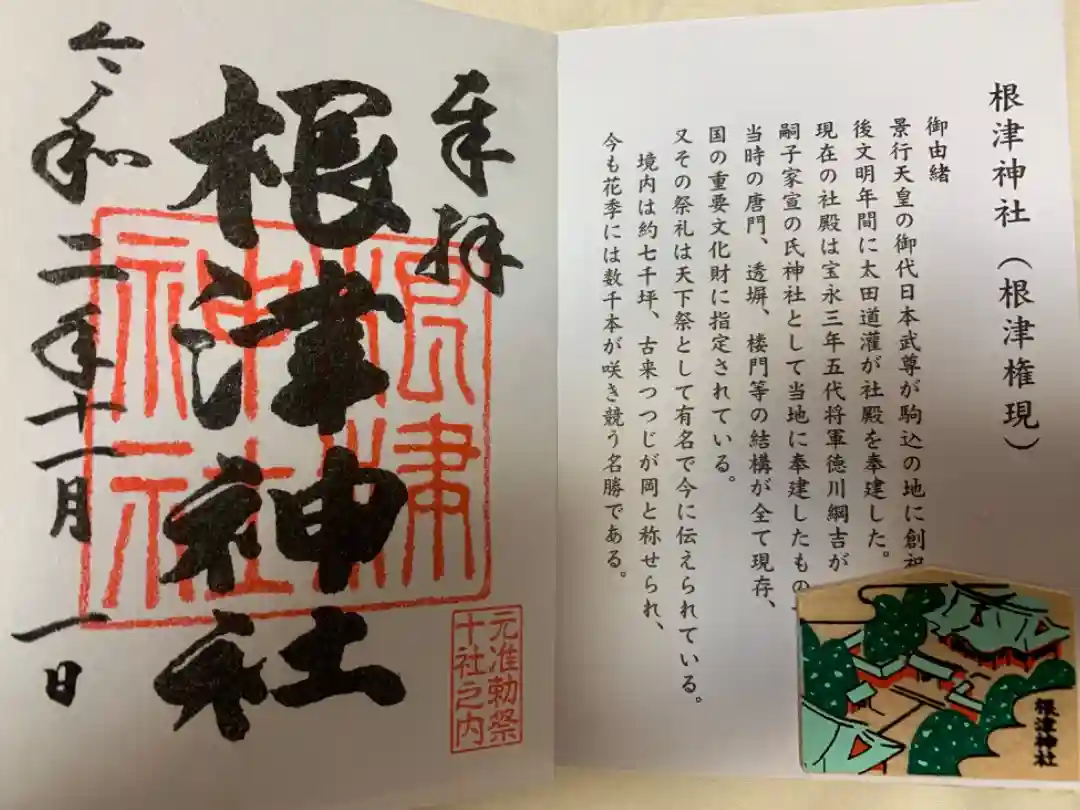 根津神社（根津権現）
御由緒
景行天皇の御代日本武尊が駒込の地に創祀
後文明年間に太田道灌が社殿を奉建した。
現在の社殿は宝永三年五代将軍徳川綱吉が
嗣子家宣の氏神社として当地に奉建したもの
当時の唐門、透塀、楼門等の結構が全て現存、
国の重要文化財に指定されている。
又その祭礼は天下祭として有名で今に伝えられている。
境内は約七千坪、古来つつじが岡と称せられ、
今も花季には数千本が咲き競う名勝である。
根津神社
奉拝
根津神社
令和二年十一月一日
根津
神社
元准勅祭
十社之内